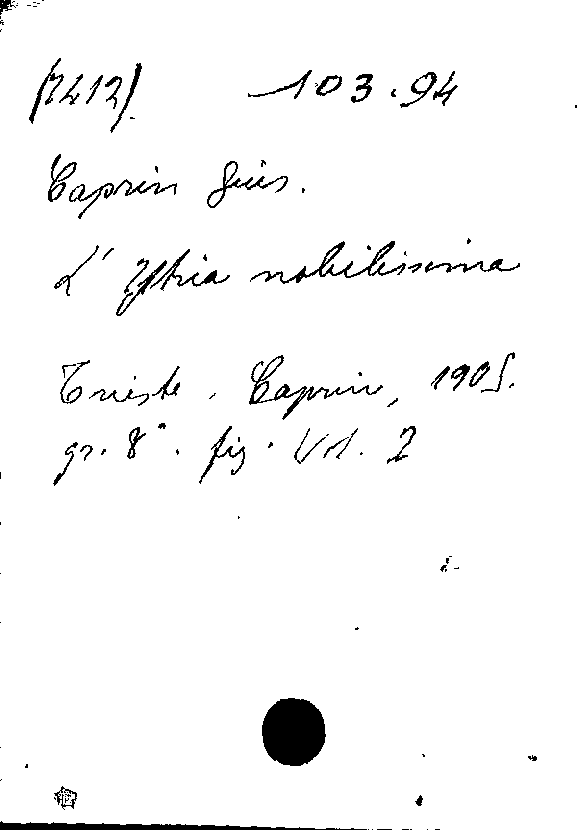 (7412) 103.94
Caprin Gius.
L'Istria nobilissima
Trieste. Caprin, 1905.
gr. 8°. fig. Vol. 2